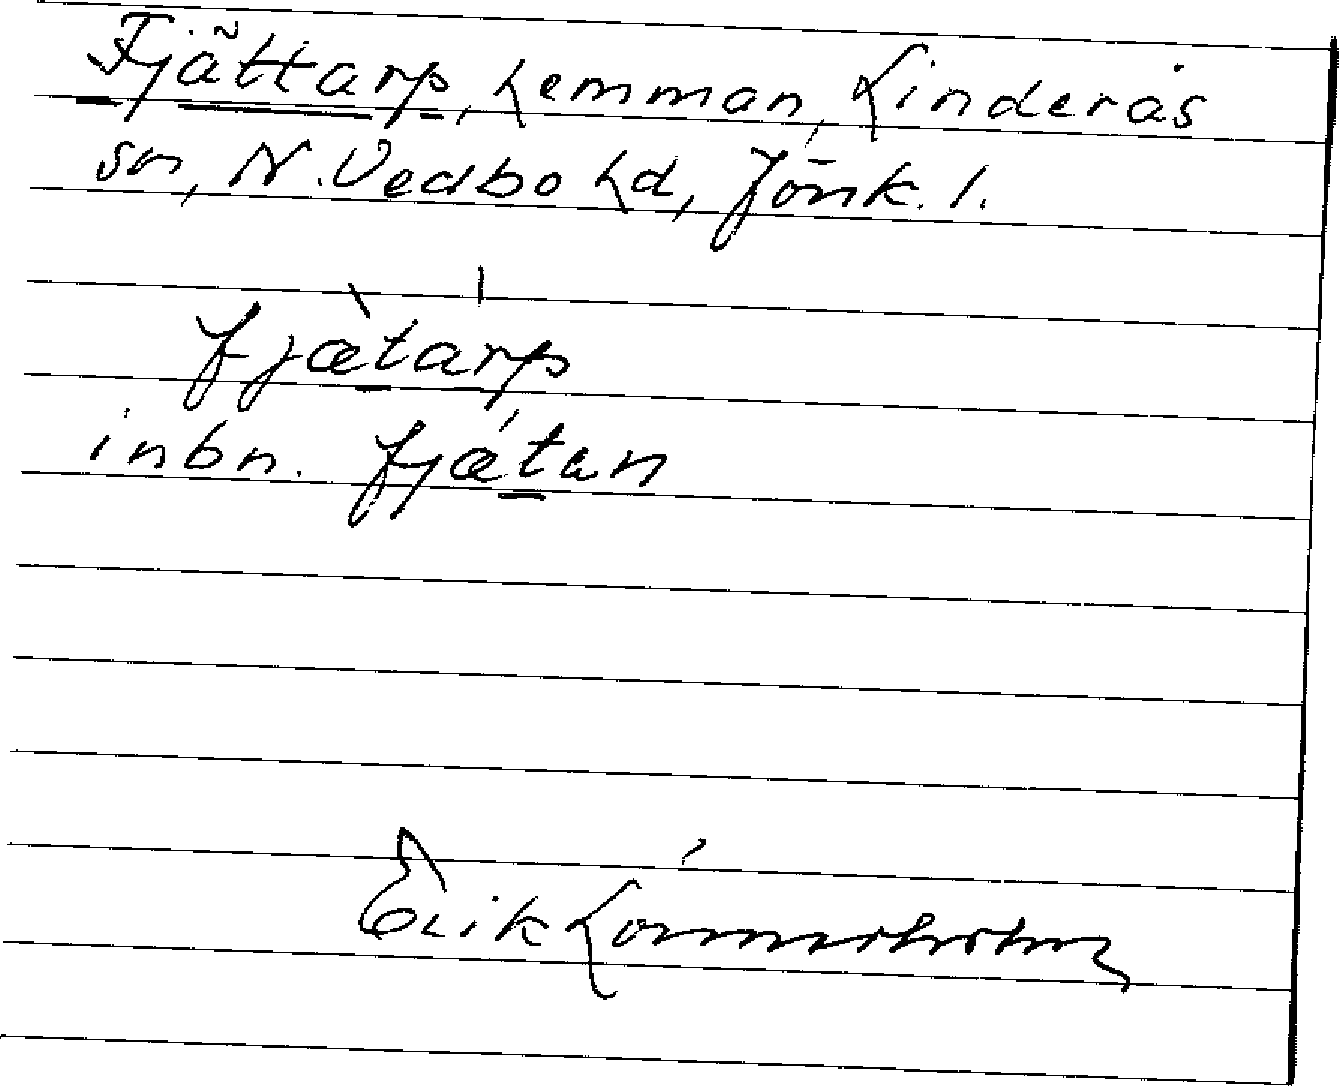 Fjättarp, hemman, Linderås
sn, N. Vedbo hd, Jönk. l.
fjætarp
inbn. fjætan
Erik Lönnerholm